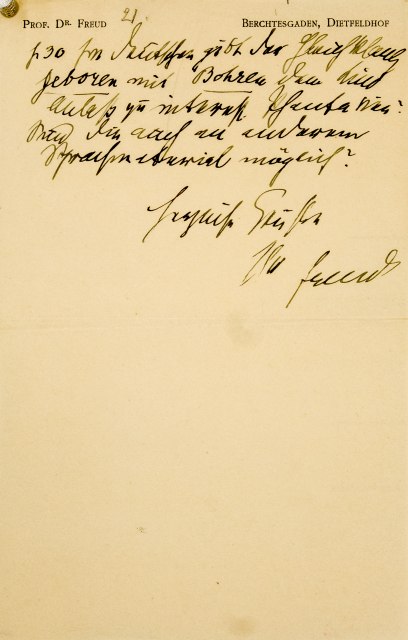 PROF. DR. FREUD 21. BERCHTESGADEN, DIETFELDHOF
p 30 Im Deutschen gibt der Gleichklang
geboren mit Bohren dem Kind
Anlaß zu interess. Phantasien.
Sind die auch an anderem
Sprachmaterial möglich?
Herzlich Grüße
Ihr Freud